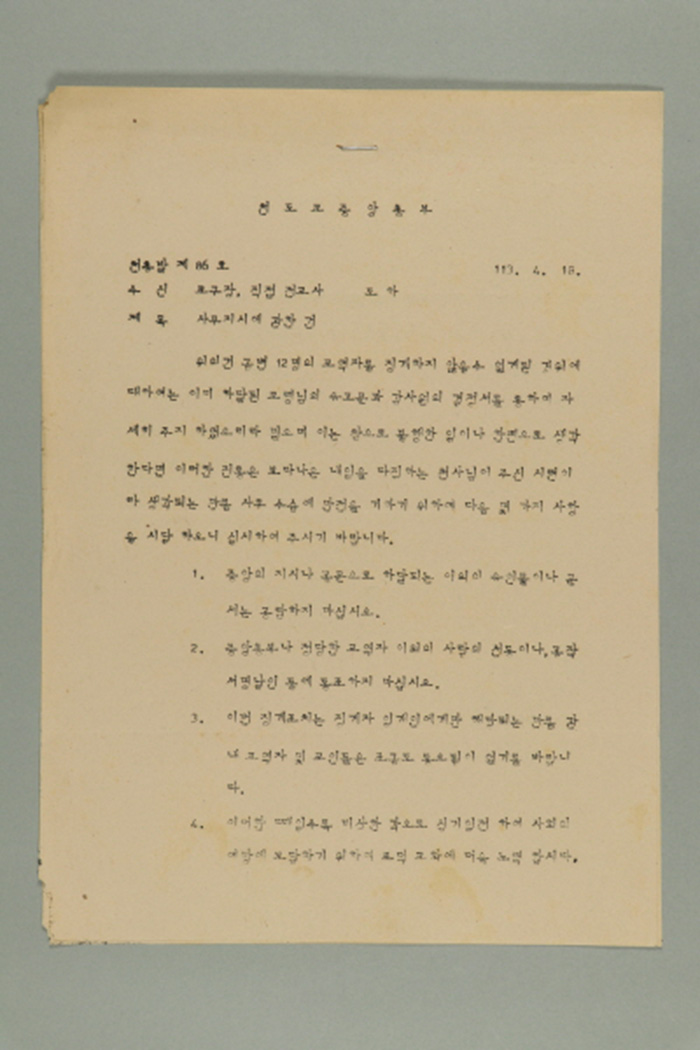 천도교중앙총부
천총발 제 86 호
수 신 교구장, 직접 전교사 도 하
제 목 사무지시에 관한 건
위의건 금번 12명의 교역자를 징계하지 않을수 없게된 경위에
대하여는 이미 하달된 교령님의 유고문과 감사원의 결정서를 통하여 자
세히 주지 하였으리라 믿으며 이는 참으로 불행한 일이나 한편으로 생각
한다면 이러한 진통은 보다나은 내일을 다짐하는 천사님이 주신 시련이
라 생각되는 만큼 사후 수습에 만전을 기하기 위하여 다음 몇 가지 사항
을 시달 하오니 실시하여 주시기 바랍니다.
1. 중앙의 지시나 공문으로 하달되는 이외의 유인물이나 문
서는 공람하지 마십시오.
2. 중앙총부나 정당한 교역자 이외의 사람의 선동이나, 공작
서명날인 등에 동조하지 마십시오.
3. 이번 징계조치는 징계자 일개인에게만 해당되는 만큼 관
내 교역자 및 교인들은 조금도 동요됨이 없기를 바랍니
다.
4. 이러한 때일수록 비상한 각오로 심기일전 하여 사회의
여망에 보답하기 위하여 교역 교화에 더욱 노력 합시다.